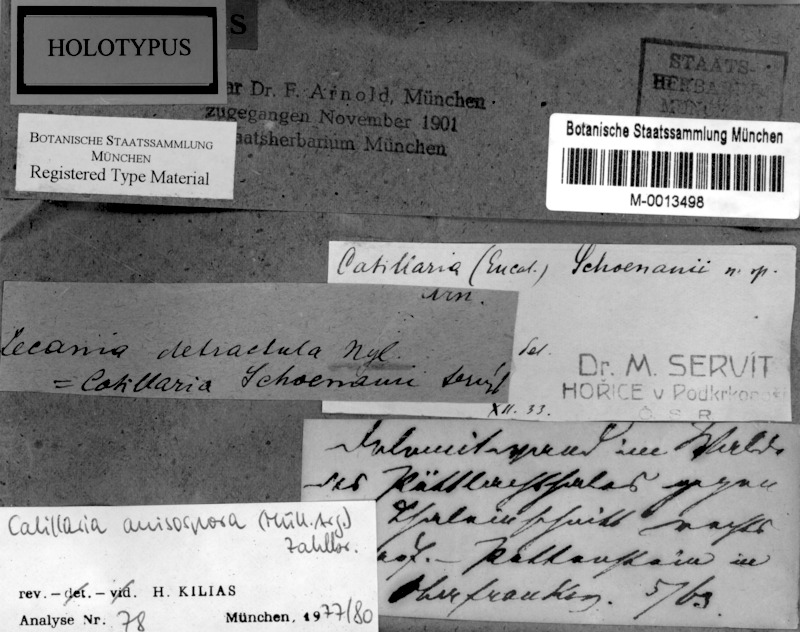 HOLOTYPUS
S
ar Dr. F. Arnold, München
zugegangen November 1901
aatsherbarium München
STAATS-
HERBARIUM
MÜNCHEN
BOTANISCHE STAATSSAMMLUNG
MÜNCHEN
Registered Type Material
Botanische Staatssammlung München
M-0013498
Catillaria (Eucat.) Schoenauii n. sp.
det.
Dr. M. SERVÍT
HOŘICE v Podkrkonoší
Č S R
XII. 33.
Lecania detractula Nyl.
= Catillaria Schoenauii Servít
im Walde
des Püttlachthales gegen
rechts
Pottenstein in
Oberfranken. 5/63
Catillaria anisospora (Müll. Arg.)
Zahlbr.
rev. – det. – vid. H. KILIAS
Analyse Nr. 78 München, 1977/80